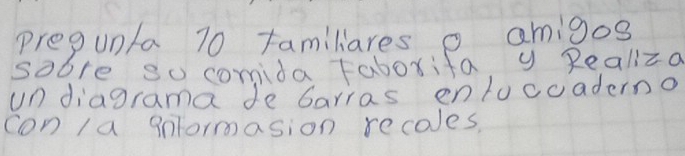 pregunta 10 familiares o amigos
sobre su comida faborita y Realiza
un diagrama de barras en tu ccaderno
con la informasion recoles.